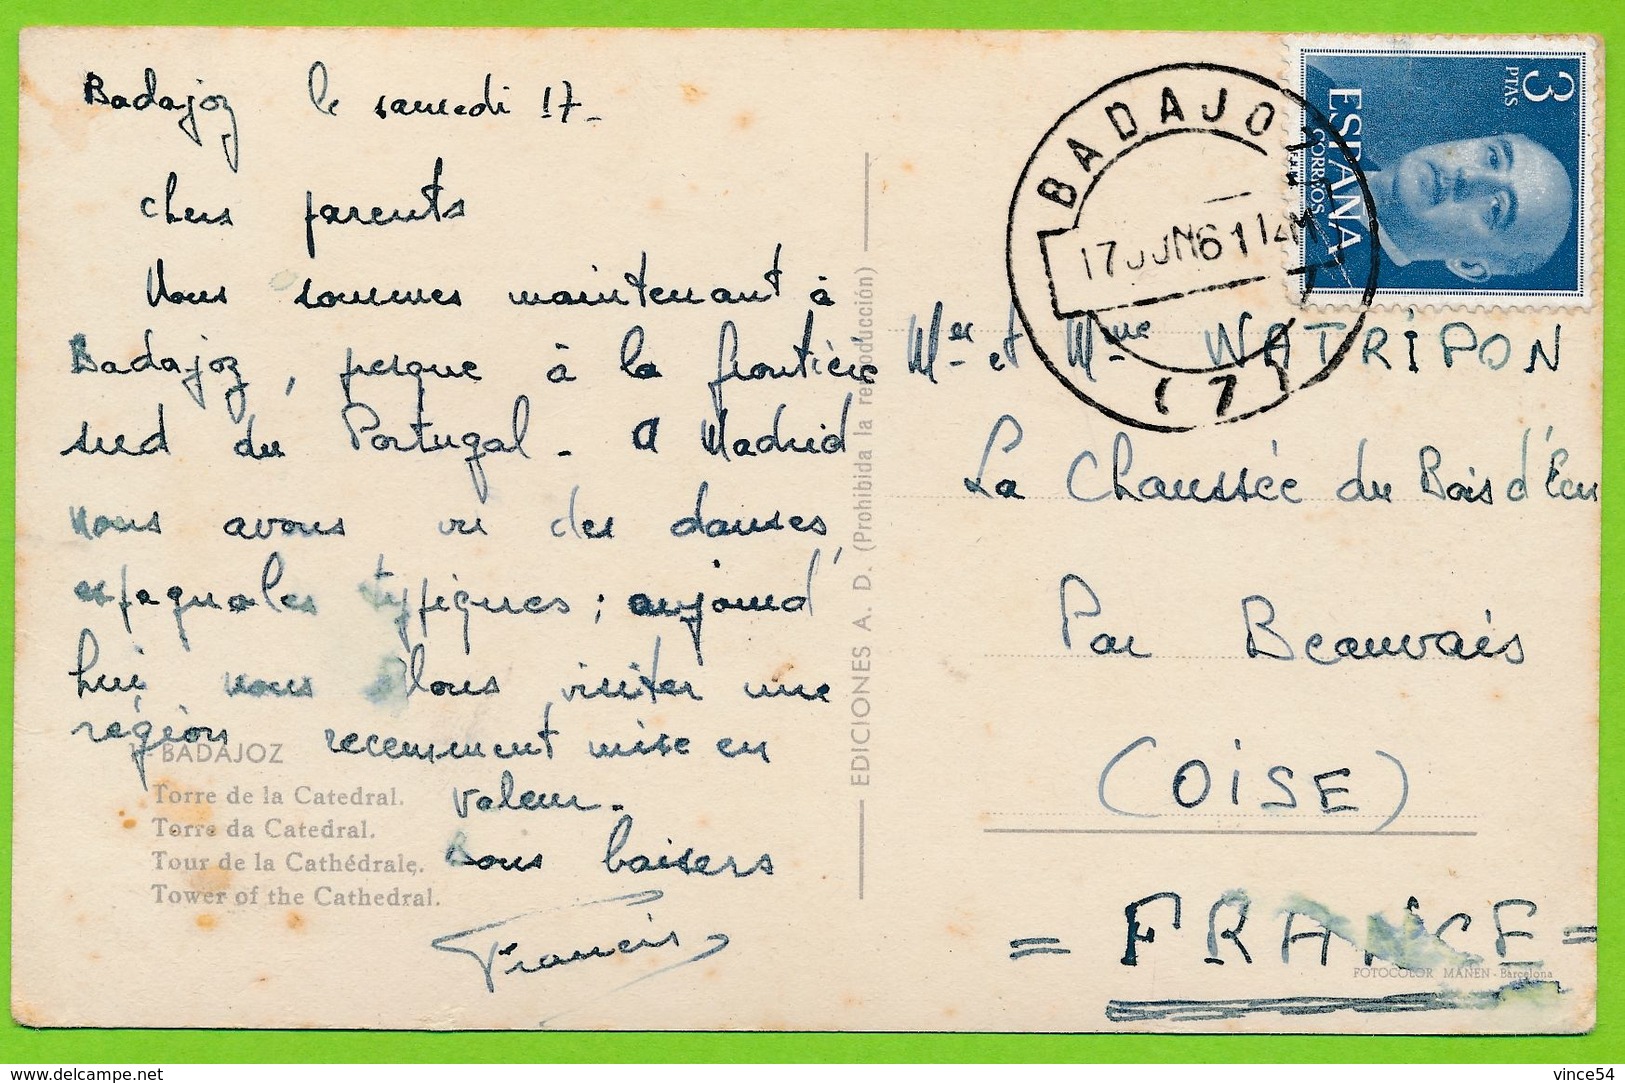 Badajoz le samedi 17-
Chers parents
Nous sommes maintenant à
Badajoz, presque à la frontière
sud du Portugal. A Madrid
nous avons vu des danses
espagnoles typiques; aujourd'
hui nous allons visiter une
région recemment mise en
valeur.
Bons baisers
Francis
BADAJOZ
Torre de la Catedral.
Torre da Catedral.
Tour de la Cathédrale.
Tower of the Cathedral.
EDICIONES A. D. (Prohibida la reproducción)
3
PTAS
ESPAÑA
CORREOS
BADAJOZ
17 JUN 61 14M
(7)
Mer et Mme WATRIPON
La Chaussée du Bois d'Ecu
Par Beauvais
(OISE)
= FRANCE =
FOTOCOLOR MANEN - Barcelona
www.delcampe.net
vince54